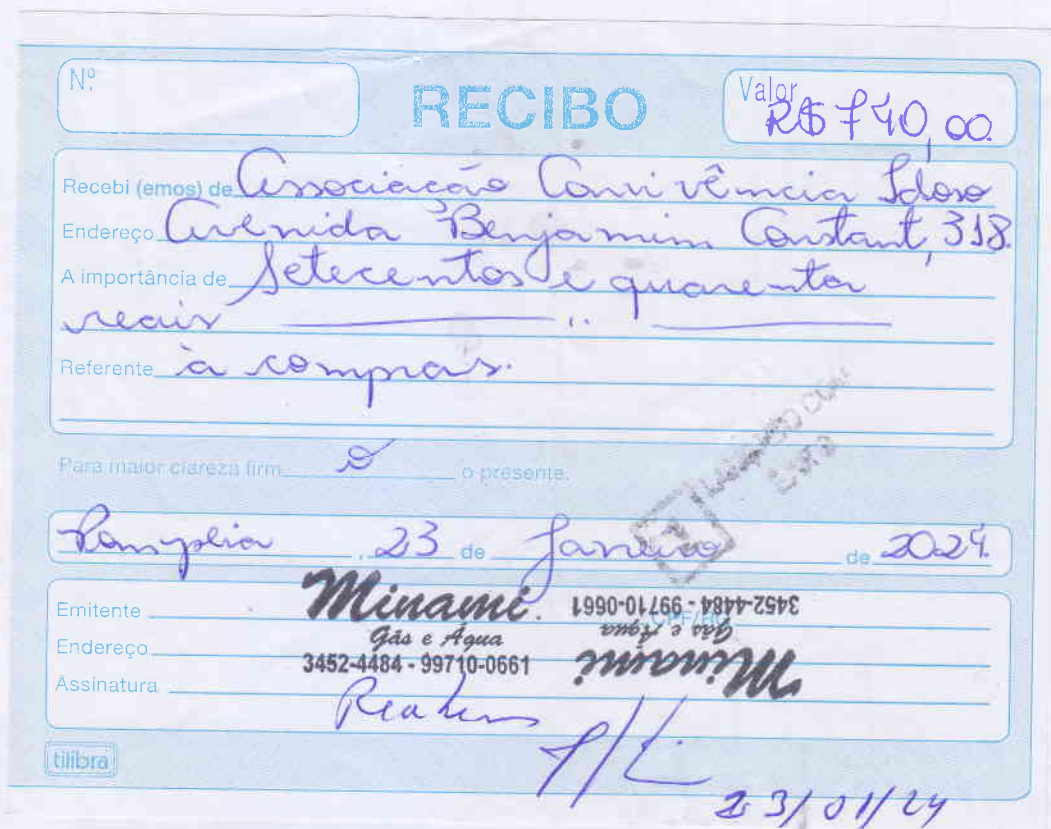 Nº
RECIBO
Valor R$ 740,00
Recebi (emos) de Associação Convivência Idoso
Endereço Avenida Benjamim Constant, 318.
A importância de Setecentos e quarenta
reais
Referente à compras.
Para maior clareza firm o o presente.
Pompeia, 23 de Janeiro de 2024.
Emitente Minami. CPF/RG
Gás e Água
Endereço
3452-4484 - 99710-0661
Assinatura
3452-4484 - 99710-0661
Gás e Água
Minami
tilibra
23/01/24